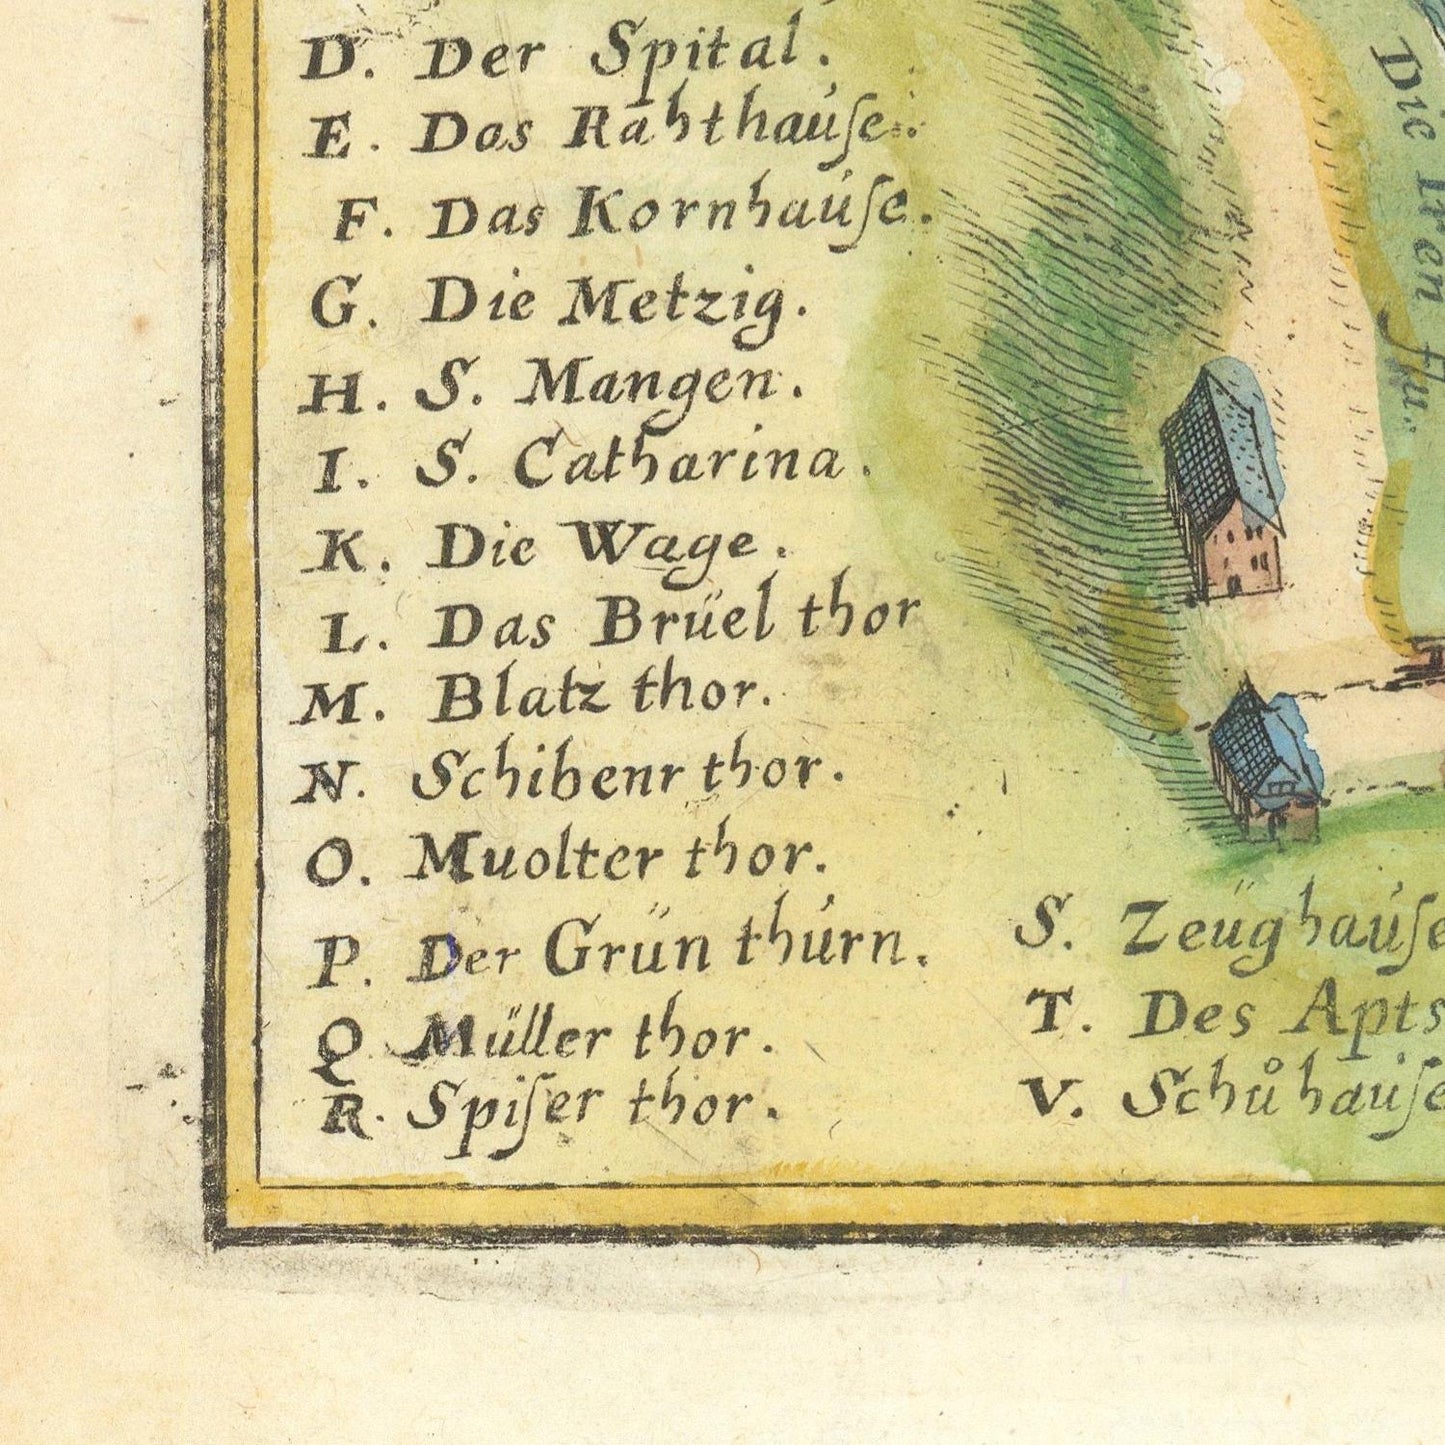 D. Der Spital.
E. Das Rahthauſe.
F. Das Kornhauſe.
G. Die Metzig.
H. S. Mangen.
I. S. Catharina.
K. Die Wage.
L. Das Brüel thor
M. Blatz thor.
N. Schibenr thor.
O. Muolter thor.
P. Der Grün thúrn.
Q Müller thor.
R. Spiſer thor.
S. Zeüghauſe
T. Des Apts
V. Schůhauſe
Die Iren flu.